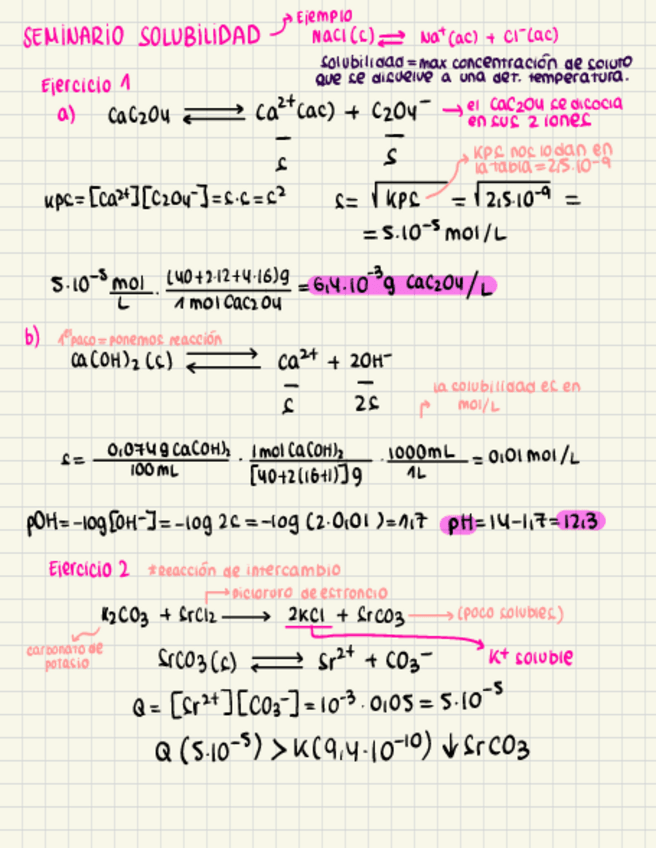 Ejemplo
SEMINARIO SOLUBILIDAD → NaCl(s) ⇌ Na⁺(ac) + Cl⁻(ac)
solubilidad = max concentración de soluto
que se disuelve a una det. temperatura.
Ejercicio 1
a) CaC₂O₄ ⇌ Ca²⁺(ac) + C₂O₄⁻ → el CaC₂O₄ se disocia
en sus 2 iones
s s
KPS nos lo dan en
la tabla = 2,5·10⁻⁹
KPS = [Ca²⁺][C₂O₄⁻] = s·s = s² s = √KPS = √2,5·10⁻⁹ =
= 5·10⁻⁵ mol/L
5·10⁻⁵ mol/L · (40+2·12+4·16)g / 1 mol CaC₂O₄ = 6,4·10⁻³ g CaC₂O₄/L
b) 1er paso = ponemos reacción
Ca(OH)₂ (s) ⇌ Ca²⁺ + 2OH⁻
s 2s
la solubilidad es en
mol/L
s = 0,074 g Ca(OH)₂ / 100 mL · 1 mol Ca(OH)₂ / [40+2(16+1)]g · 1000mL / 1L = 0,01 mol/L
pOH = -log[OH⁻] = -log 2s = -log (2·0,01) = 1,7 pH = 14-1,7 = 12,3
Ejercicio 2 *Reacción de intercambio
→ Dicloruro de estroncio
K₂CO₃ + SrCl₂ → 2KCl + SrCO₃ → (poco solubles)
carbonato de
potasio
K⁺ soluble
SrCO₃(s) ⇌ Sr²⁺ + CO₃⁻
Q = [Sr²⁺][CO₃⁻] = 10⁻³ · 0,05 = 5·10⁻⁵
Q (5·10⁻⁵) > K(9,4·10⁻¹⁰) ↓ SrCO₃